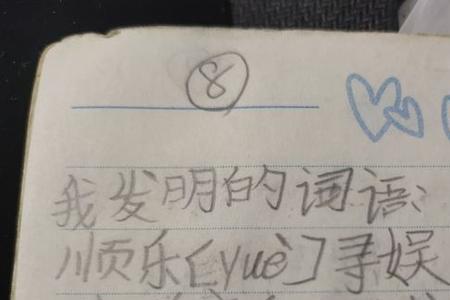 8
我发明的词语:
顺乐[yuè]寻娱